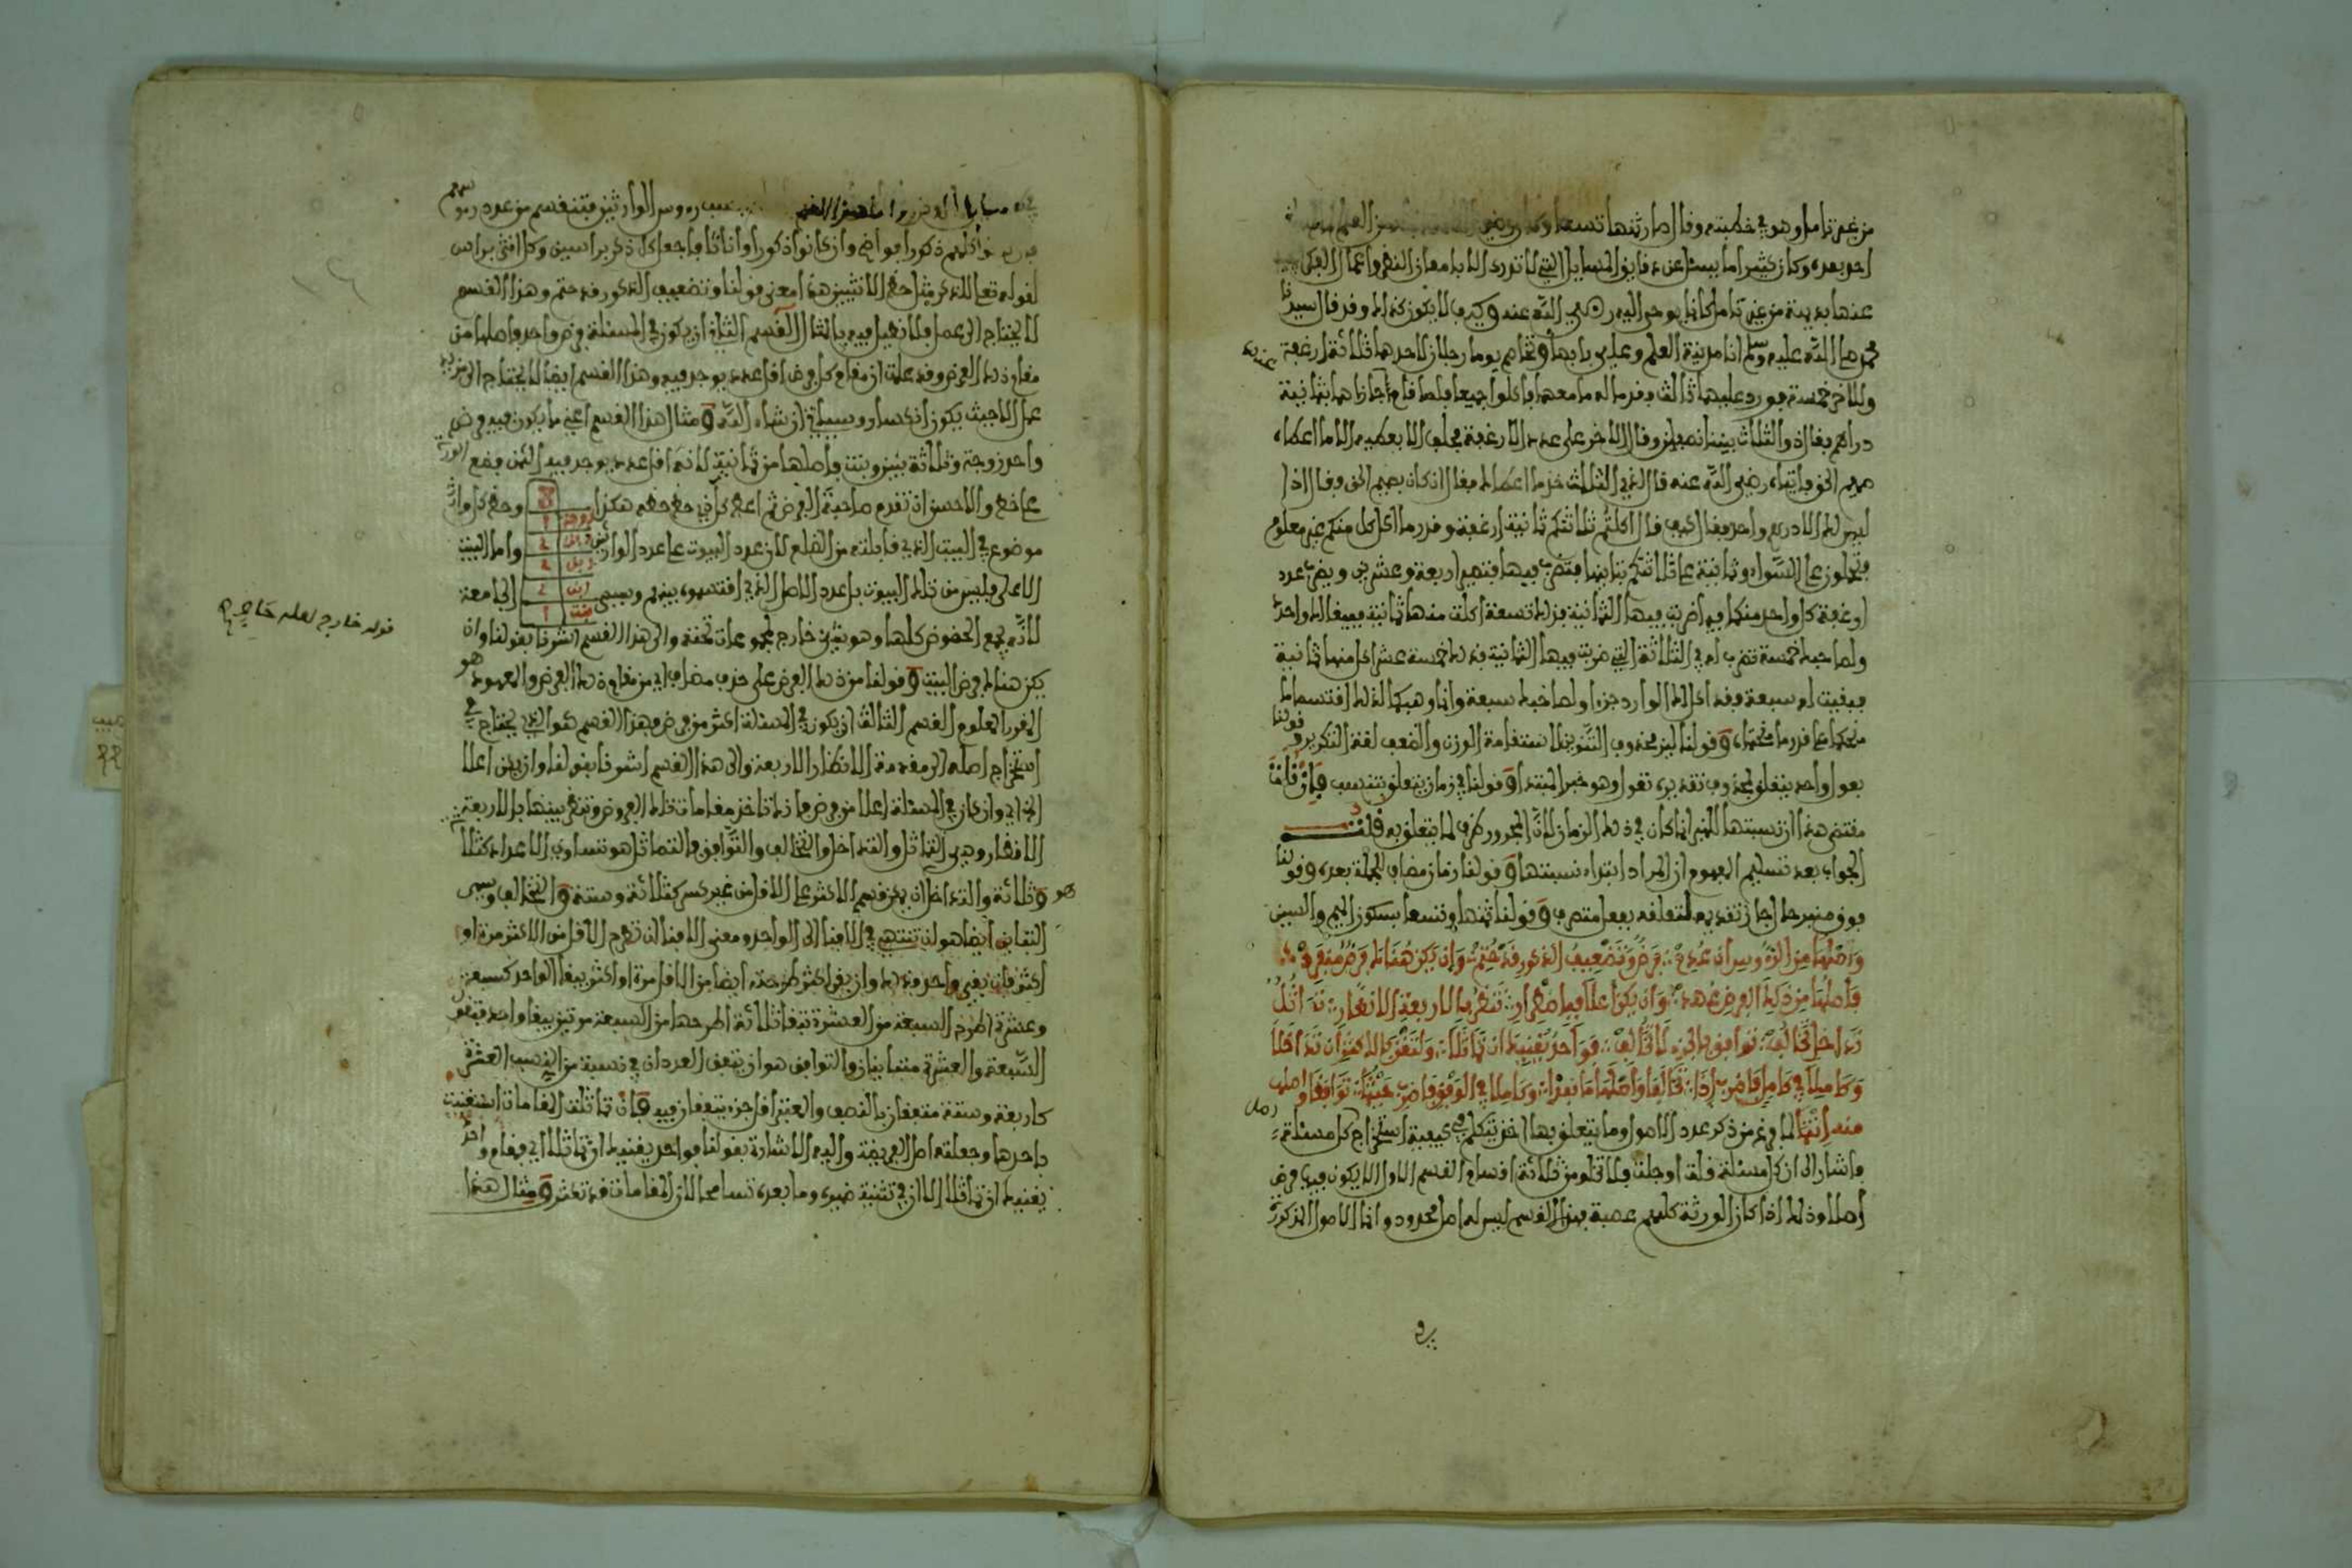 من غير تامل وهو في خطبته وقال صار ثمنها تسعا وكان رضي الله عنه
احد بعده وكان كثيرا ما يسئل عن دقايق المسايل التي لا تدرك الا بامعان النظر واعمال الفكر
عنها بديهة من غير تامل كانها يوحى اليه رضي الله عنه وكيف لا يكون كذلك وقد قال سيدنا
محمد صلى الله عليه وسلم انا مدينة العلم وعلي بابها وتخاصم يوما رجلان لاحدهما ثلاثة ارغفة
وللاخر خمسة فورد عليهما ثالث فقدما له ما معهما فاكلوا جميعا فلما قام اجازهما بثمانية
دراهم فقال ذو الثلاث بيننا نصفان وقال الاخر على عدد الارغفة فحلف الا يعطيه الا ما اعطاه
صميم الحق فاتياه رضي الله عنه قال لذي الثلاث خذ ما اعطاك فقال ان كان بصميم الحق فقال اذا
ليس لك الا درهم واحد فقال كيف قال اكلتم ثلاثتكم ثمانية ارغفة وقدر ما اكل كل منكم غير معلوم
فتحملون على السواء وثمانية على ثلاثتكم تباينها فتضرب فيها فتصير اربعة وعشرين ويضرب عدد
ارغفة كل واحد منكما فيما ضربت فيها الثمانية فلك تسعة اكلت منها ثمانية فيبقى لك واحد
ولصاحبك خمسة تضرب له في الثلاثة التي ضربت فيها الثمانية فذلك خمسة عشر اكل منها ثمانية
فبقيت له سبعة وقد اكل لك الوارد جزءا ولصاحبك سبعة وانما وهبكما لذلك اقتسماها
منكما على قدر ما منحتماه وقولنا لبن محذوف التنوين لاستقامة الوزن والضعف لغة التكرير وقولنا
بعول واحد يتعلق بمحذوف تقديره تعول وهو خبر المبتدا وقولنا في زمان يتعلق بتنسب فان قلت
مقتضى هذا ان نسبتها للمنبر انما كان في ذلك الزمان لان المجرور ظرف لما يتعلق به قلت
الجواب بعد تسليم المفهوم ان المراد ابتداء نسبتها وقولنا زمان مضاف لجملة بعده وقولنا
فوق منبر حال جاز تقديم لتعلقه بفعل متصرف وقولنا ثمنها وتسعا بسكون الميم والسين
وَاَصْلُهَا مِنَ الرُّءُوسِ اِنْ عُدِمْ فَرْضٌ وَتَضْعِيفُ الذُّكُورِ قَدْ حُتِمْ وَاِنْ يَكُنْ هُنَاكَ فَرْضٌ مُنْفَرِدْ
فَاَصْلُهَا مِنْ ذَلِكَ الفَرْضِ عُهِدْ وَاِنْ يَكُنْ اَعْلَا فَبِاضْطِرَارِ تَنْظُرُ بِالاَرْبَعَةِ الاَنْظَارِ تَمَاثُلُ
تَدَاخُلٌ تَخَالُفْ تَوَافُقٌ بِالجُزْءِ لَا تُخَالِفْ فَوَاحِدٌ يُغْنِيكَ اِنْ تَمَاثَلَا وَلْتَغْنَ بِالاَكْثَرِ اِنْ تَدَاخَلَا
وَكَامِلًا فِي كَامِلٍ فَاضْرِبْ اِذَا تَخَالَفَا وَاَصْلُهَا مَا نَفَذَا وَكَامِلًا فِي الوَفْقِ فَاضْرِبْ حَيْثُمَا تَوَافَقَا وَاَصْلُهَا
مِنْهُ انْتَمَا لما فرغ من ذكر عدد الاصول وما يتعلق بها اخذ يتكلم في كيفية استخراج كل مسئلة
فاشار الى ان كل مسئلة قلت او جلت فلا تخلو من ثلاثة اقسام القسم الاول الا يكون فيها فرض
اصلا وذلك اذا كان الورثة كلهم عصبة فهذا القسم ليس له اصل محدود وانما الاصول المذكورة
رءوس الوارثين فتنقسم من عدد رءوسهم
كلهم ذكورا فواضح وان كانوا ذكورا واناثا فاجعل كل ذكر براسين وكل انثى براس
لقوله تعالى للذكر مثل حظ الانثيين هذا معنى قولنا وتضعيف الذكور قد حتم وهذا القسم
لا يحتاج الى عمل فلا نطيل فيه بالمثال القسم الثاني ان يكون في المسئلة فرض واحد فاصلها من
مقام ذلك الفرض وقد علمت ان مقام كل فرض اقل عدد يوجد فيه وهذا القسم ايضا لا يحتاج الى مزيد
عمل الا حيث يكون انكسار وسياتي ان شاء الله ومثال هذا القسم اعني ما يكون فيه فرض
واحد زوجة وثلاثة بنين وبنت فاصلها من ثمانية لانه اقل عدد يوجد فيه الثمن فضع الورثة
على خط والاحسن ان تقدم صاحبة الفرض ثم اعط كل ذي حظ حظه هكذا وحظ كل وارث
موضوع في البيت الذي قابلته من الضلع لان عدد البيوت على عدد الوارثين واما البيت
الاعلى فليس من تلك البيوت بل عدد الاصل الذي اقتسموه بينهم ويسمى الجامعة
لانه يجمع الحظوظ كلها وهو شيء خارج لمجموعات تحته والى هذا القسم اشرنا بقولنا وان
يكن هناك فرض البيت وقولنا من ذلك الفرض على حذف مضاف اي من مقام ذلك الفرض والمعهود هو
المقرر المعلوم القسم الثالث ان يكون في المسئلة اكثر من فرض فهذا القسم هو الذي يحتاج في
استخراج اصله الى مقدمة الانظار الاربعة والى هذا القسم اشرنا بقولنا وان يكن اعلا
الخ اي وان كان في المسئلة اعلا من فرض فانك تاخذ مقامات تلك الفروض وتنظر بينها بالاربعة
الانظار وهي التماثل والتداخل والتخالف والتوافق فالتماثل هو تساوي الاعداد كثلاثة
وثلاثة والتداخل ان يصح قسم الاكثر على الاقل من غير كسر كثلاثة وستة والتخالف ويسمى
هو
التباين ايضا هو ان تنتهي في الافناء الى الواحد ومعنى الافناء ان تطرح الاقل من الاكثر مرة او
اكثر فان بقي واحد فذلك وان بقي اكثر طرحته ايضا من الاقل مرة او اكثر يبقا الواحد كسبعة
وعشرة اطرح السبعة من العشرة تبقا ثلاثة اطرحها من السبعة مرتين يبقا واحد فتقول
السبعة والعشرة متباينان والتوافق هو ان يتفق العددان في نسبة من النسب العشرة
كاربعة وستة متفقان بالنصف والمعتبر اقل جزء يتفقان فيه فان تماثلت المقامات استغنيت
باحدها وجعلته اصل الفريضة واليه الاشارة بقولنا فواحد يغنيك ان تماثلا اي فمقام واحد
يغنيك ان تماثلا الا ان في تثنية ضميره وما بعده تسامحا لان المقامات قد تكثر ومثال هذا
٨
زوجة ١
ابن ٢
ابن ٢
ابن ٢
بنت ١
قوله خارج لعله حاصر